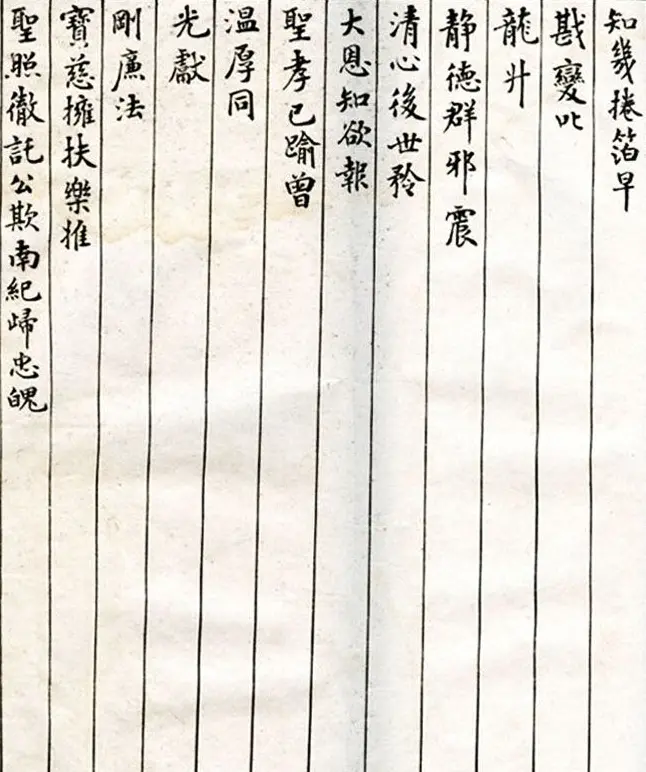 知幾捲箔早
戡變叱
龍升
静德群邪震
清心後世矜
大恩知欲報
聖孝已踰曾
温厚同
光獻
剛廉法
寶慈擁扶樂推
聖照徹託公欺南紀歸忠魄